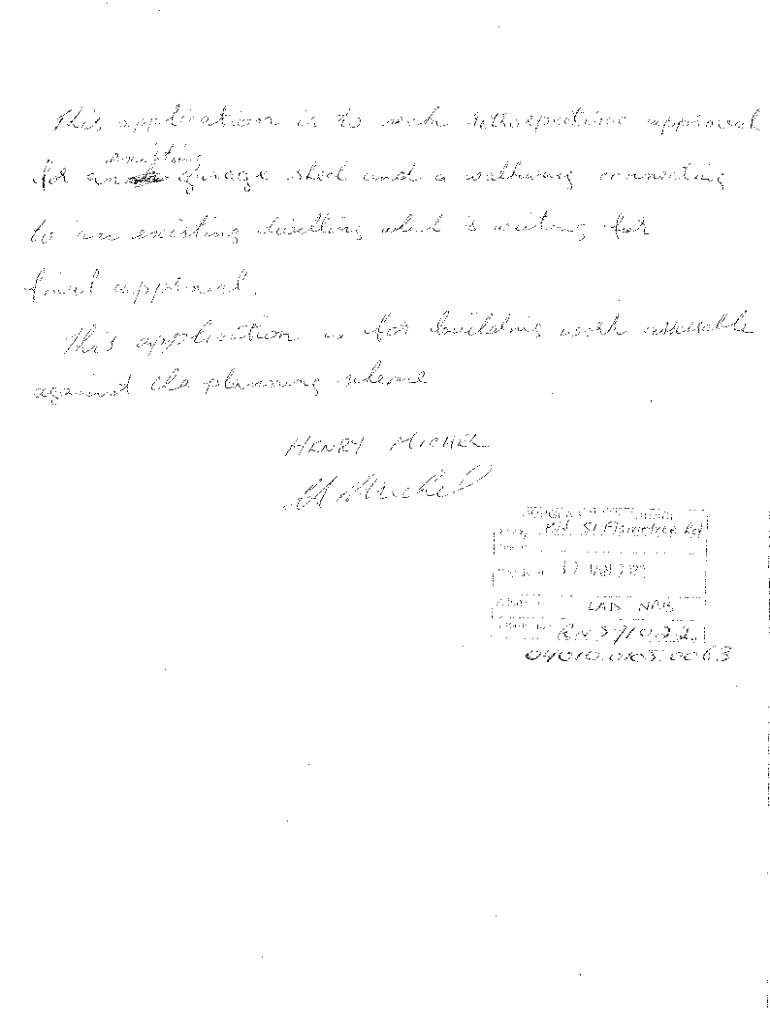 This application is to seek retrospective approval
existing
for an garage shed and a walkway connecting
to an existing dwelling which is waiting for
final approval.
This application is for building work assessable
against the planning scheme
HENRY MICHEL
H Michel
LAD
04010.0105.0063